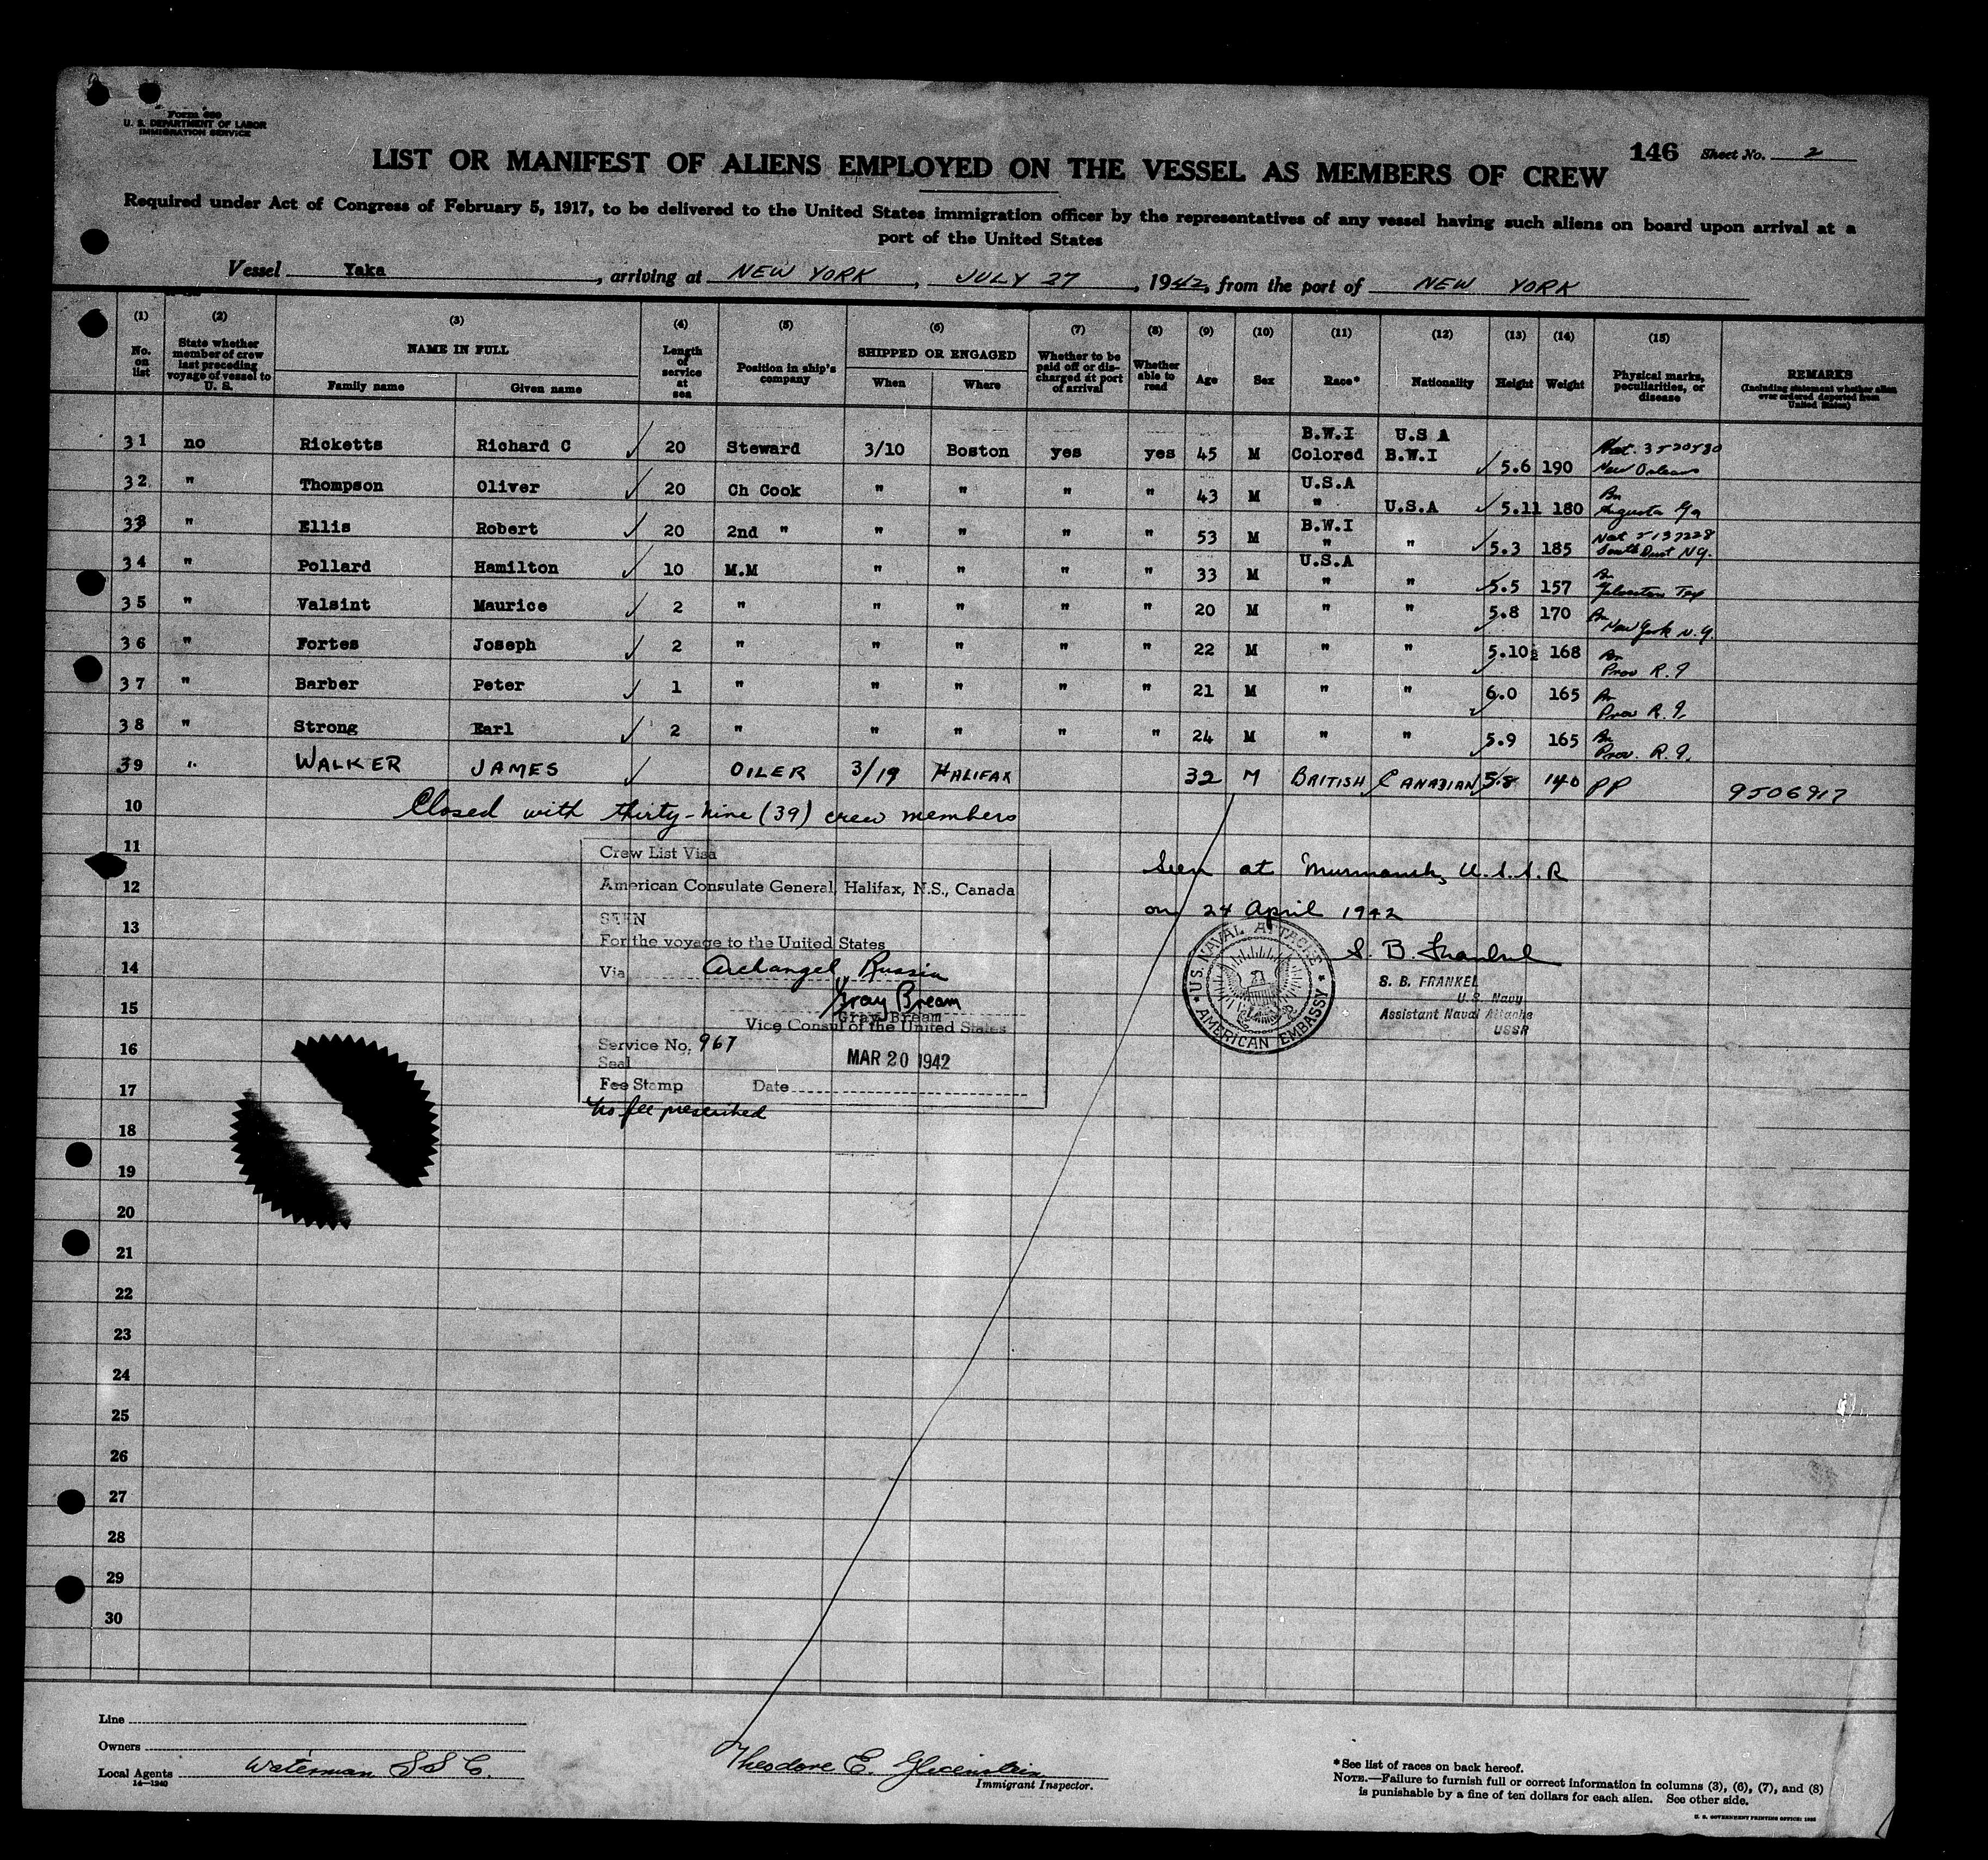 Form 680
U. S. DEPARTMENT OF LABOR
IMMIGRATION SERVICE
146 Sheet No. 2
LIST OR MANIFEST OF ALIENS EMPLOYED ON THE VESSEL AS MEMBERS OF CREW
Required under Act of Congress of February 5, 1917, to be delivered to the United States immigration officer by the representatives of any vessel having such aliens on board upon arrival at a
port of the United States
Vessel Yaka, arriving at NEW YORK, JULY 27, 1942, from the port of NEW YORK
(1) (2) (3) (4) (5) (6) (7) (8) (9) (10) (11) (12) (13) (14) (15)
No. on list State whether member of crew last preceding voyage of vessel to U. S. NAME IN FULL Family name Given name Length of service at sea Position in ship's company SHIPPED OR ENGAGED When Where Whether to be paid off or discharged at port of arrival Whether able to read Age Sex Race* Nationality Height Weight Physical marks, peculiarities, or disease REMARKS (Including statement whether alien ever ordered deported from United States)
31 no Ricketts Richard C ✓ 20 Steward 3/10 Boston yes yes 45 M B.W.I Colored U.S A B.W.I ✓ 5.6 190 Nat. 3520580 New Orleans
32 " Thompson Oliver ✓ 20 Ch Cook " " " " 43 M U.S.A " U.S.A ✓ 5.11 180 Bn Augusta Ga
33 " Ellis Robert ✓ 20 2nd " " " " " 53 M B.W.I " " ✓ 5.3 185 Nat 5137228 South Dist N.Y.
34 " Pollard Hamilton ✓ 10 M.M " " " " 33 M U.S.A " " ✓ 5.5 157 Bn Galveston Tex
35 " Valsint Maurice ✓ 2 " " " " " 20 M " " ✓ 5.8 170 Bn New York N.Y.
36 " Fortes Joseph ✓ 2 " " " " " 22 M " " ✓ 5.10½ 168 Bn Prov R.I
37 " Barber Peter ✓ 1 " " " " " 21 M " " ✓ 6.0 165 Bn Prov R.I.
38 " Strong Earl ✓ 2 " " " " " 24 M " " ✓ 5.9 165 Bn Prov. R.I.
39 " WALKER JAMES ✓ OILER 3/19 HALIFAX 32 M BRITISH CANADIAN 5.8 140 PP 9506917
10 Closed with thirty-nine (39) crew members
11
12
13
14
15
16
17
18
19
20
21
22
23
24
25
26
27
28
29
30
Crew List Visa
American Consulate General, Halifax, N.S., Canada
SEEN
For the voyage to the United States
Via Archangel, Russia
Gray Bream
Gray Bream
Vice Consul of the United States
Service No. 967
Seal
MAR 20 1942
Fee Stamp Date
No fee prescribed
Seen at Murmansk, U.S.S.R
on 24 April 1942
U.S. NAVAL ATTACHE
AMERICAN EMBASSY
S. B. Frankel
S. B. FRANKEL
U.S. Navy
Assistant Naval Attache
USSR
Line
Owners
Local Agents Waterman S S C.
14—1240
Theodore E. Glicenstein
Immigrant Inspector.
*See list of races on back hereof.
NOTE.—Failure to furnish full or correct information in columns (3), (6), (7), and (8)
is punishable by a fine of ten dollars for each alien. See other side.
U. S. GOVERNMENT PRINTING OFFICE: